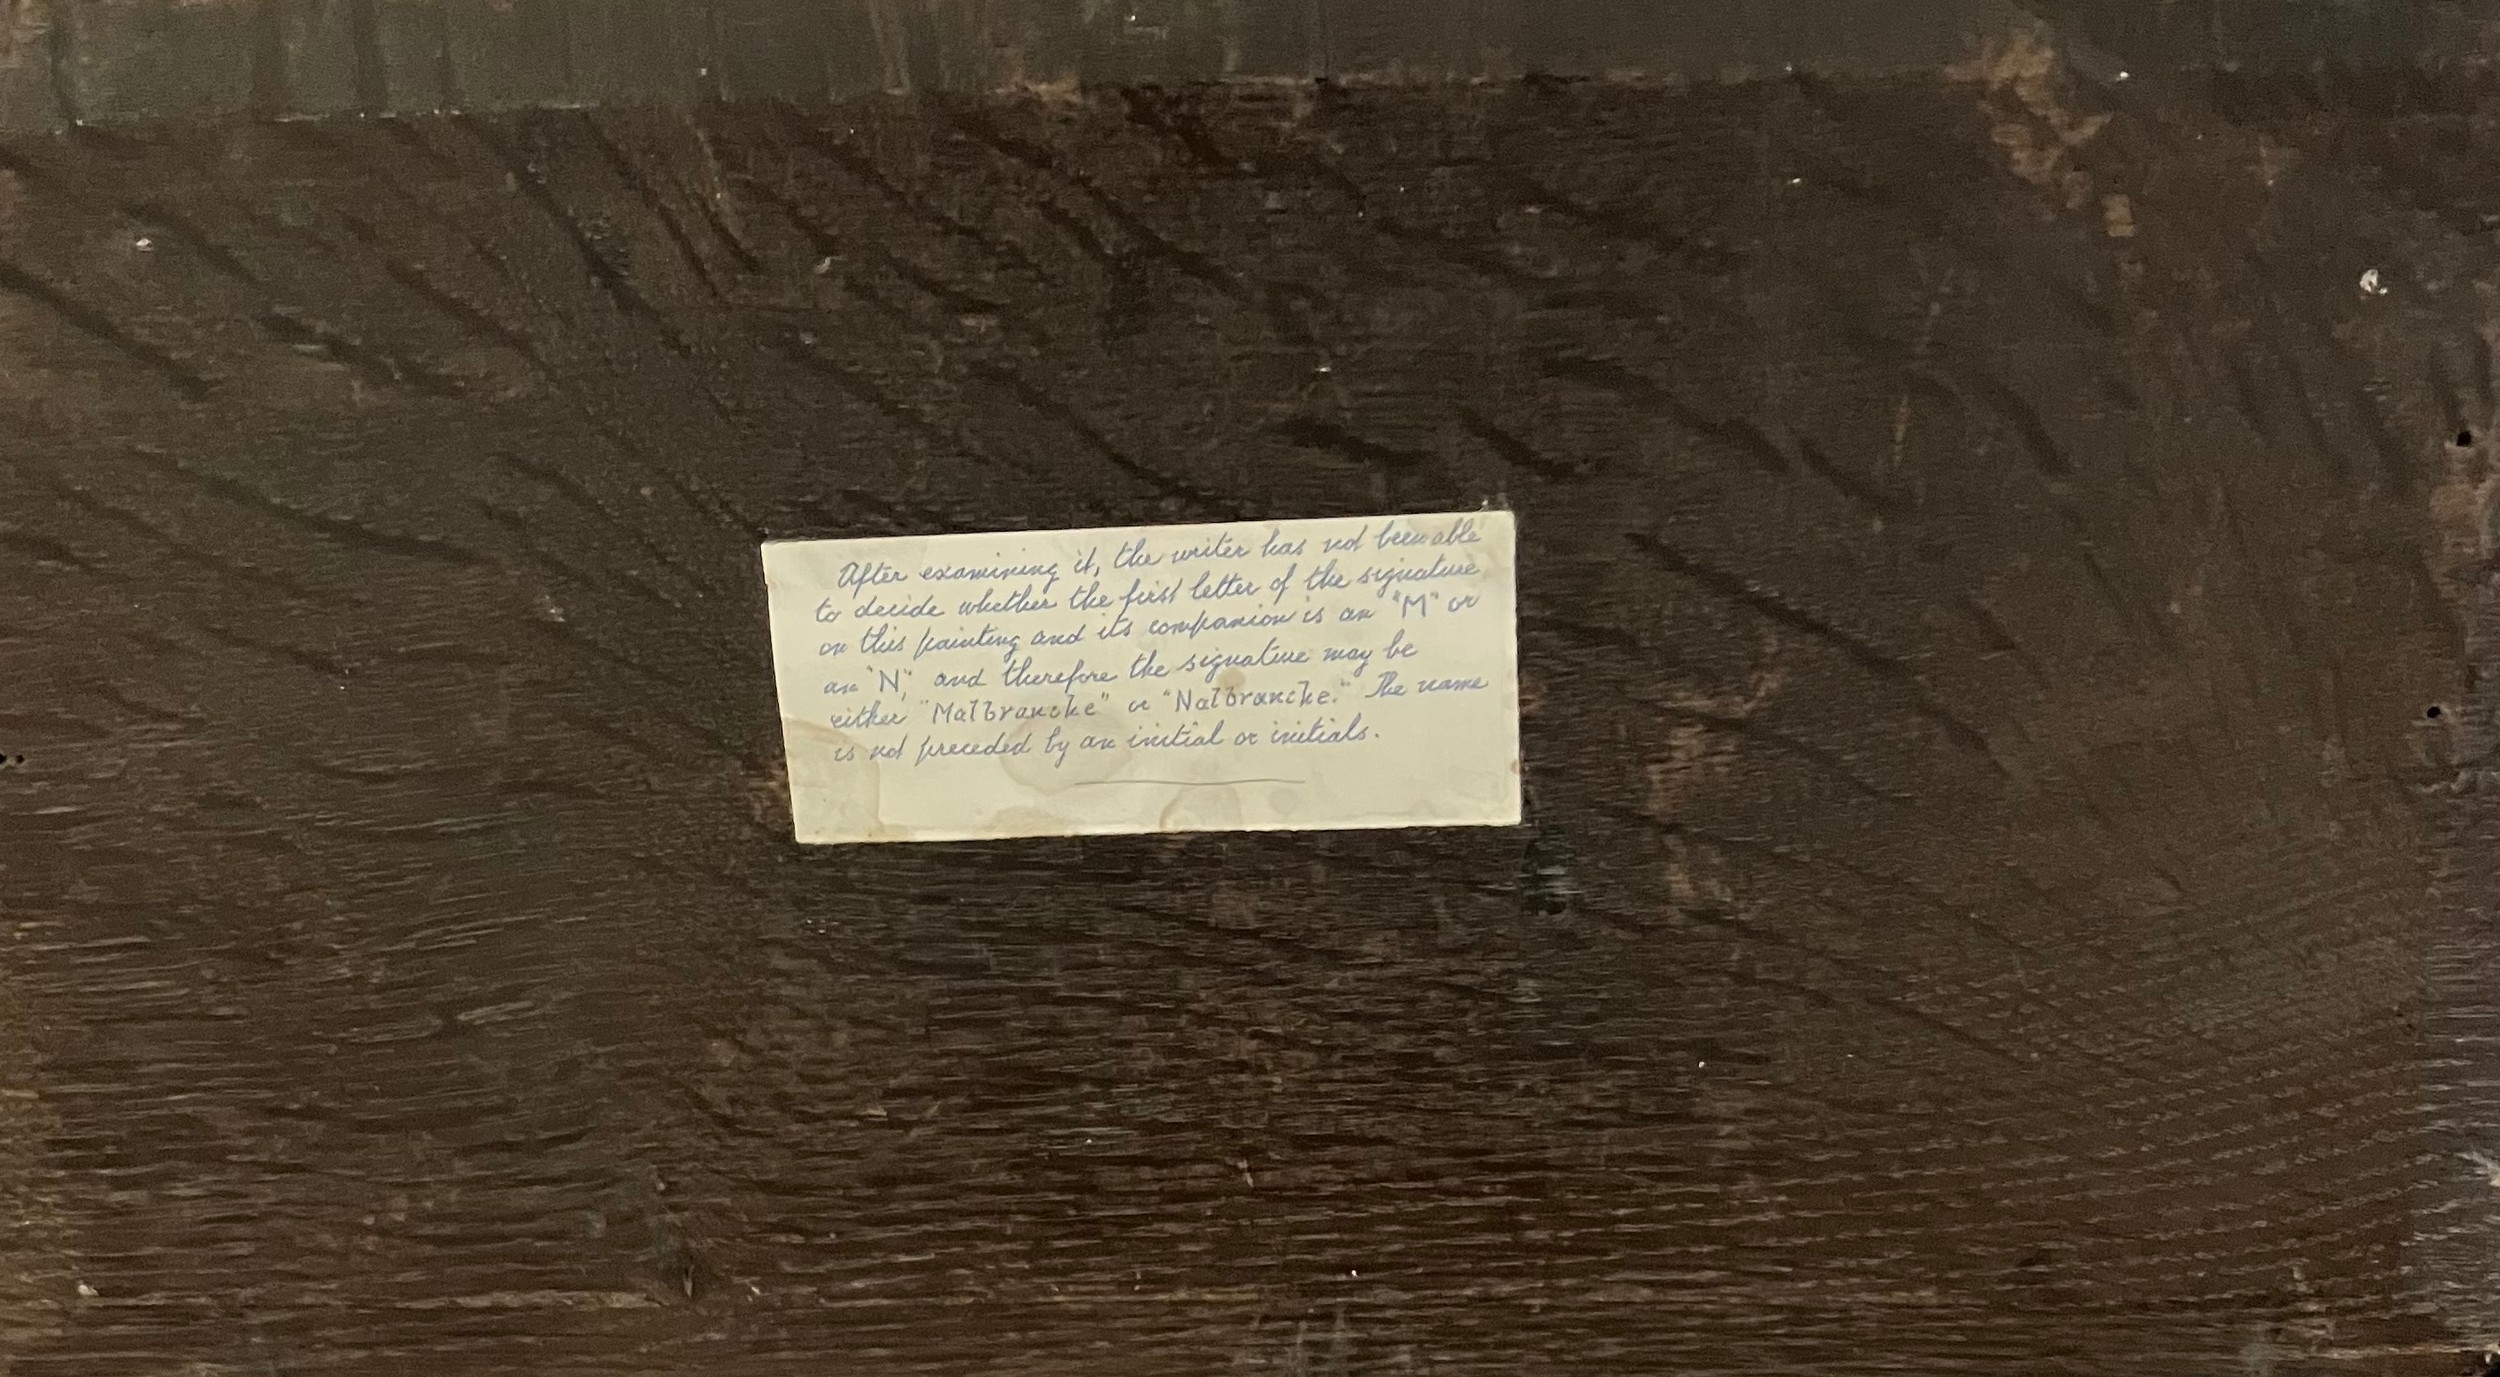 After examining it, the writer has not been able
to decide whether the first letter of the signature
on this painting and its companion is an "M" or
an "N", and therefore the signature may be
either "Malbranche" or "Nalbranche." The name
is not preceded by an initial or initials.